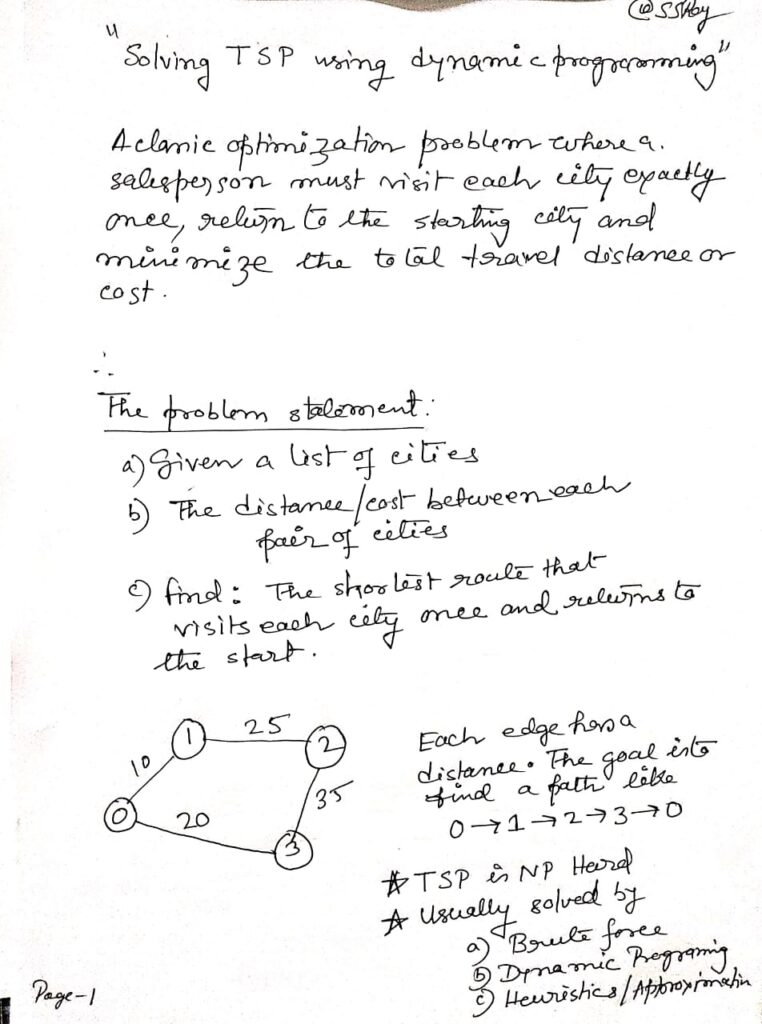 @SSRoy
"Solving TSP using dynamic programming"
A classic optimization problem where a
salesperson must visit each city exactly
once, return to the starting city and
minimize the total travel distance or
cost.
∴
The problem statement:
a) Given a list of cities
b) The distance/cost between each
pair of cities
c) find: The shortest route that
visits each city once and returns to
the start.
1 25 2
10
0 20 35
3
Each edge has a
distance. The goal is to
find a path like
0→1→2→3→0
☆ TSP is NP Hard
☆ Usually solved by
a) Brute force
b) Dynamic Programing
c) Heuristics/Approximatin
Page-1